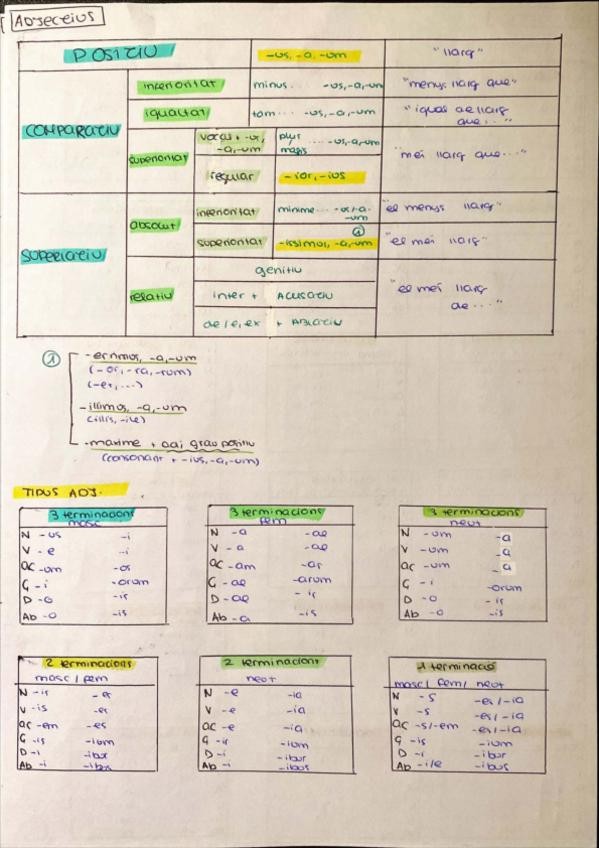 ADJECTIUS
POSITIU -us, -a, -um "llarg"
COMPARATIU
inferioritat minus... -us, -a, -um "menys llarg que"
igualtat tam... -us, -a, -um "igual de llarg que..."
superioritat
vocal + -us, -a, -um
plus magis ... -us, -a, -um
"més llarg que..."
regular -ior, -ius
SUPERLATIU
absolut
inferioritat minime... -us, -a, -um "el menys llarg"
superioritat -issimus, -a, -um ① "el més llarg"
relatiu
genitiu
inter + Acusatiu
de/e, ex + Ablatiu
"el més llarg de..."
① -errimus, -a, -um
(-er, -ra, -rum)
(-er, ...)
-illimus, -a, -um
(illis, -ile)
-maxime + adj grau positiu
(consonant + -ius, -a, -um)
TIPUS ADJ.
3 terminacions
masc
N -us -i
V -e -i
Ac -um -os
G -i -orum
D -o -is
Ab -o -is
3 terminacions
fem
N -a -ae
V -a -ae
Ac -am -as
G -ae -arum
D -ae -is
Ab -a -is
3 terminacions
neut
N -um -a
V -um -a
Ac -um -a
G -i -orum
D -o -is
Ab -o -is
2 terminacions
masc / fem
N -is -es
V -is -es
Ac -em -es
G -is -ium
D -i -ibus
Ab -i -ibus
2 terminacions
neut
N -e -ia
V -e -ia
Ac -e -ia
G -is -ium
D -i -ibus
Ab -i -ibus
1 terminació
masc / fem / neut
N -s -es/-ia
V -s -es/-ia
Ac -s/-em -es/-ia
G -is -ium
D -i -ibus
Ab -i/e -ibus